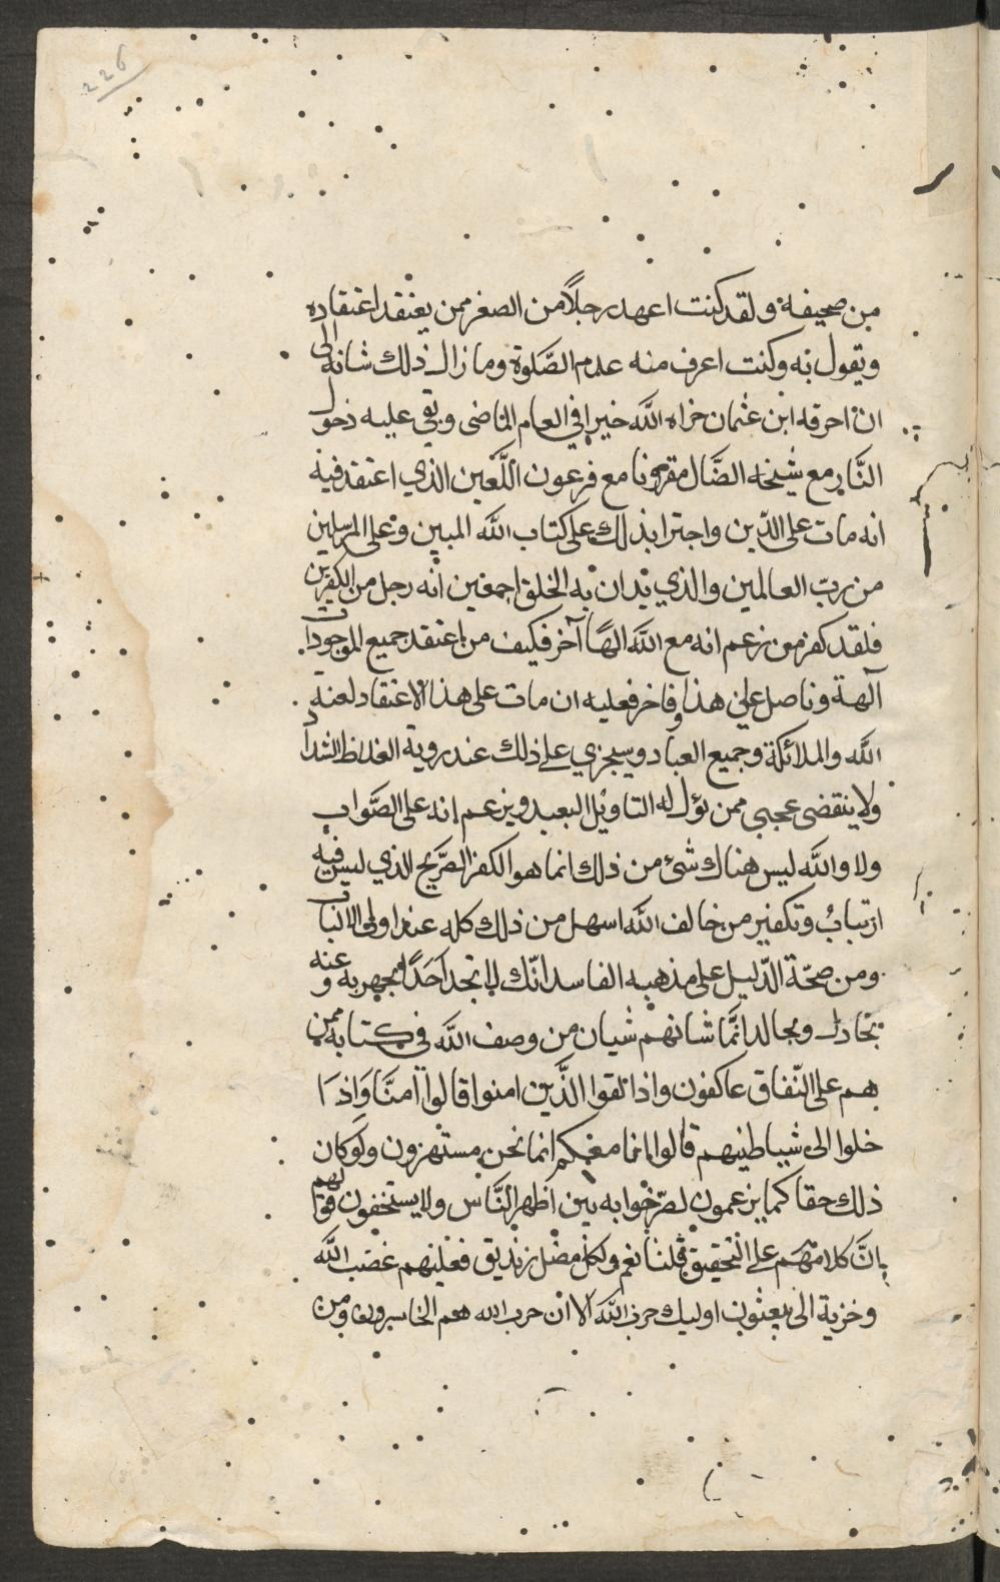 226
من صحيفة ولقد كنت اعهد رجلاً من الصغر ممن يعتقد اعتقاده
ويقول به وكنت اعرف منه عدم الصَّلوة وما زال ذلك شانه الى
ان احرقه ابن عثمان جزاه الله خيرا في العام الماضى وبقى عليه دخول
النَّار مع شيخه الضَّال مقرونا مع فرعون اللَّعين الذي اعتقد فيه
انه مات على الدّين واجترا بذلك على كتاب الله المبين وعلى المرسلين
من ربّ العالمين والذي يدان به الخلق اجمعين انه رجل من الكفرين
فلقد كفر من زعم انه مع الله الهًا آخر فكيف من اعتقد جميع الموجودات
آلهة وناصل على هذا وفاخر فعليه ان مات على هذا الاعتقاد لعنة
الله والملائكة وجميع العباد وسيجزي على ذلك عند روية الغلاظ الشداد
ولا ينقضى عجبي ممن يؤل له التاويل البعيد ويزعم انه على الصَّواب
ولا والله ليس هناك شئ من ذلك انما هو الكفر الصَّريح الذي ليس فيه
ارتيابُ وتكفير من خالف الله اسهل من ذلك كله عند اولى الالباب
ومن صحّة الدّليل على مذهبه الفاسد انّك لا تجد احَدًا يجهر به وعنه
يجادل ويجالد انَّما شانهم شيان من وصف الله في كتابه ممن
هم على النّفاق عاكفون واذا لقوا الذَّين امنوا قالوا آمنَّا وَاذا
خلوا الى شياطينهم قالوا انا معكم انما نحن مستهزون ولَو كان
ذلك حقا كما يزعمون لصرّخوا به بين اظهر النَّاس ولا يستخفون قولهم
بانَّ كلامهَم على التحقيق قلنا نعم ولكل مضل زنديق فعليهم غضب الله
وخزية الى يبعثون اوليك حزب اللَه الا ان حزب الله هم الخاسرون ومن